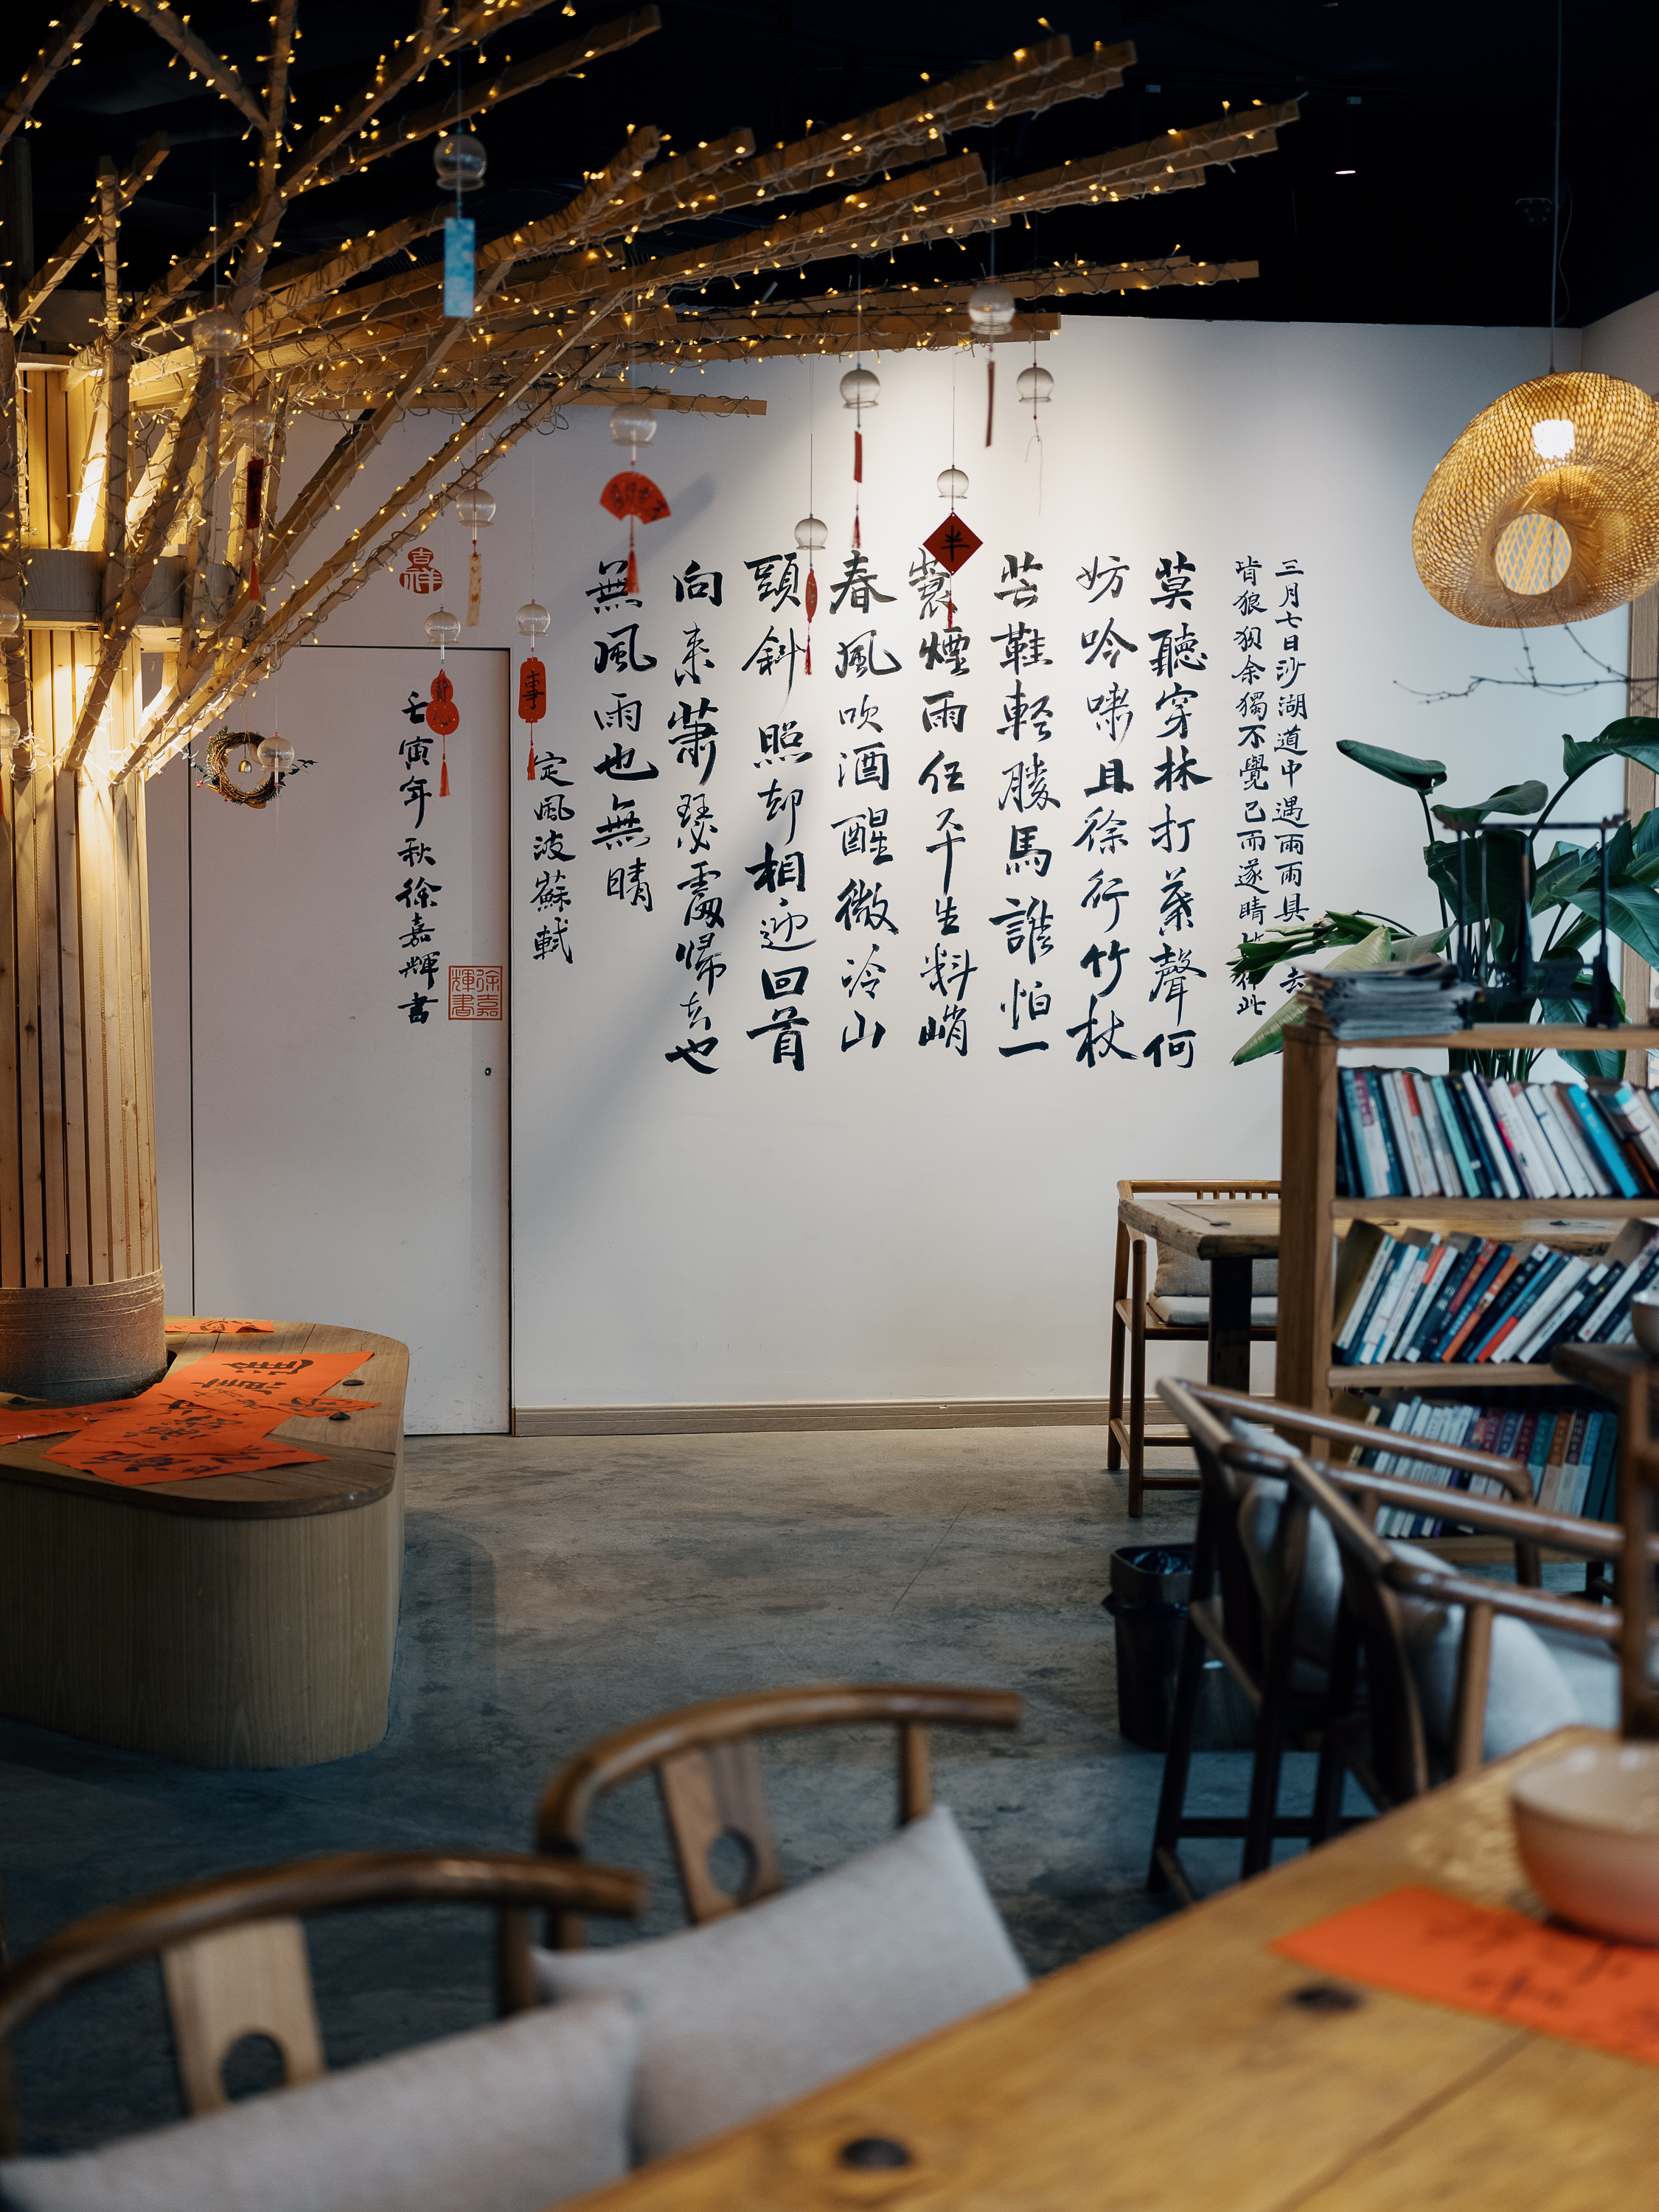 三月七日沙湖道中遇雨雨具去
皆狼狽余獨不覺已而遂晴作此
莫聽穿林打葉聲何
妨吟嘯且徐行竹杖
芒鞋輕勝馬誰怕一
蓑煙雨任平生料峭
春風吹酒醒微冷山
頭斜照却相迎回首
向来蕭瑟處歸去也
無風雨也無晴
定風波蘇軾
壬寅年秋徐嘉輝書
徐嘉輝書
吉祥
半
事